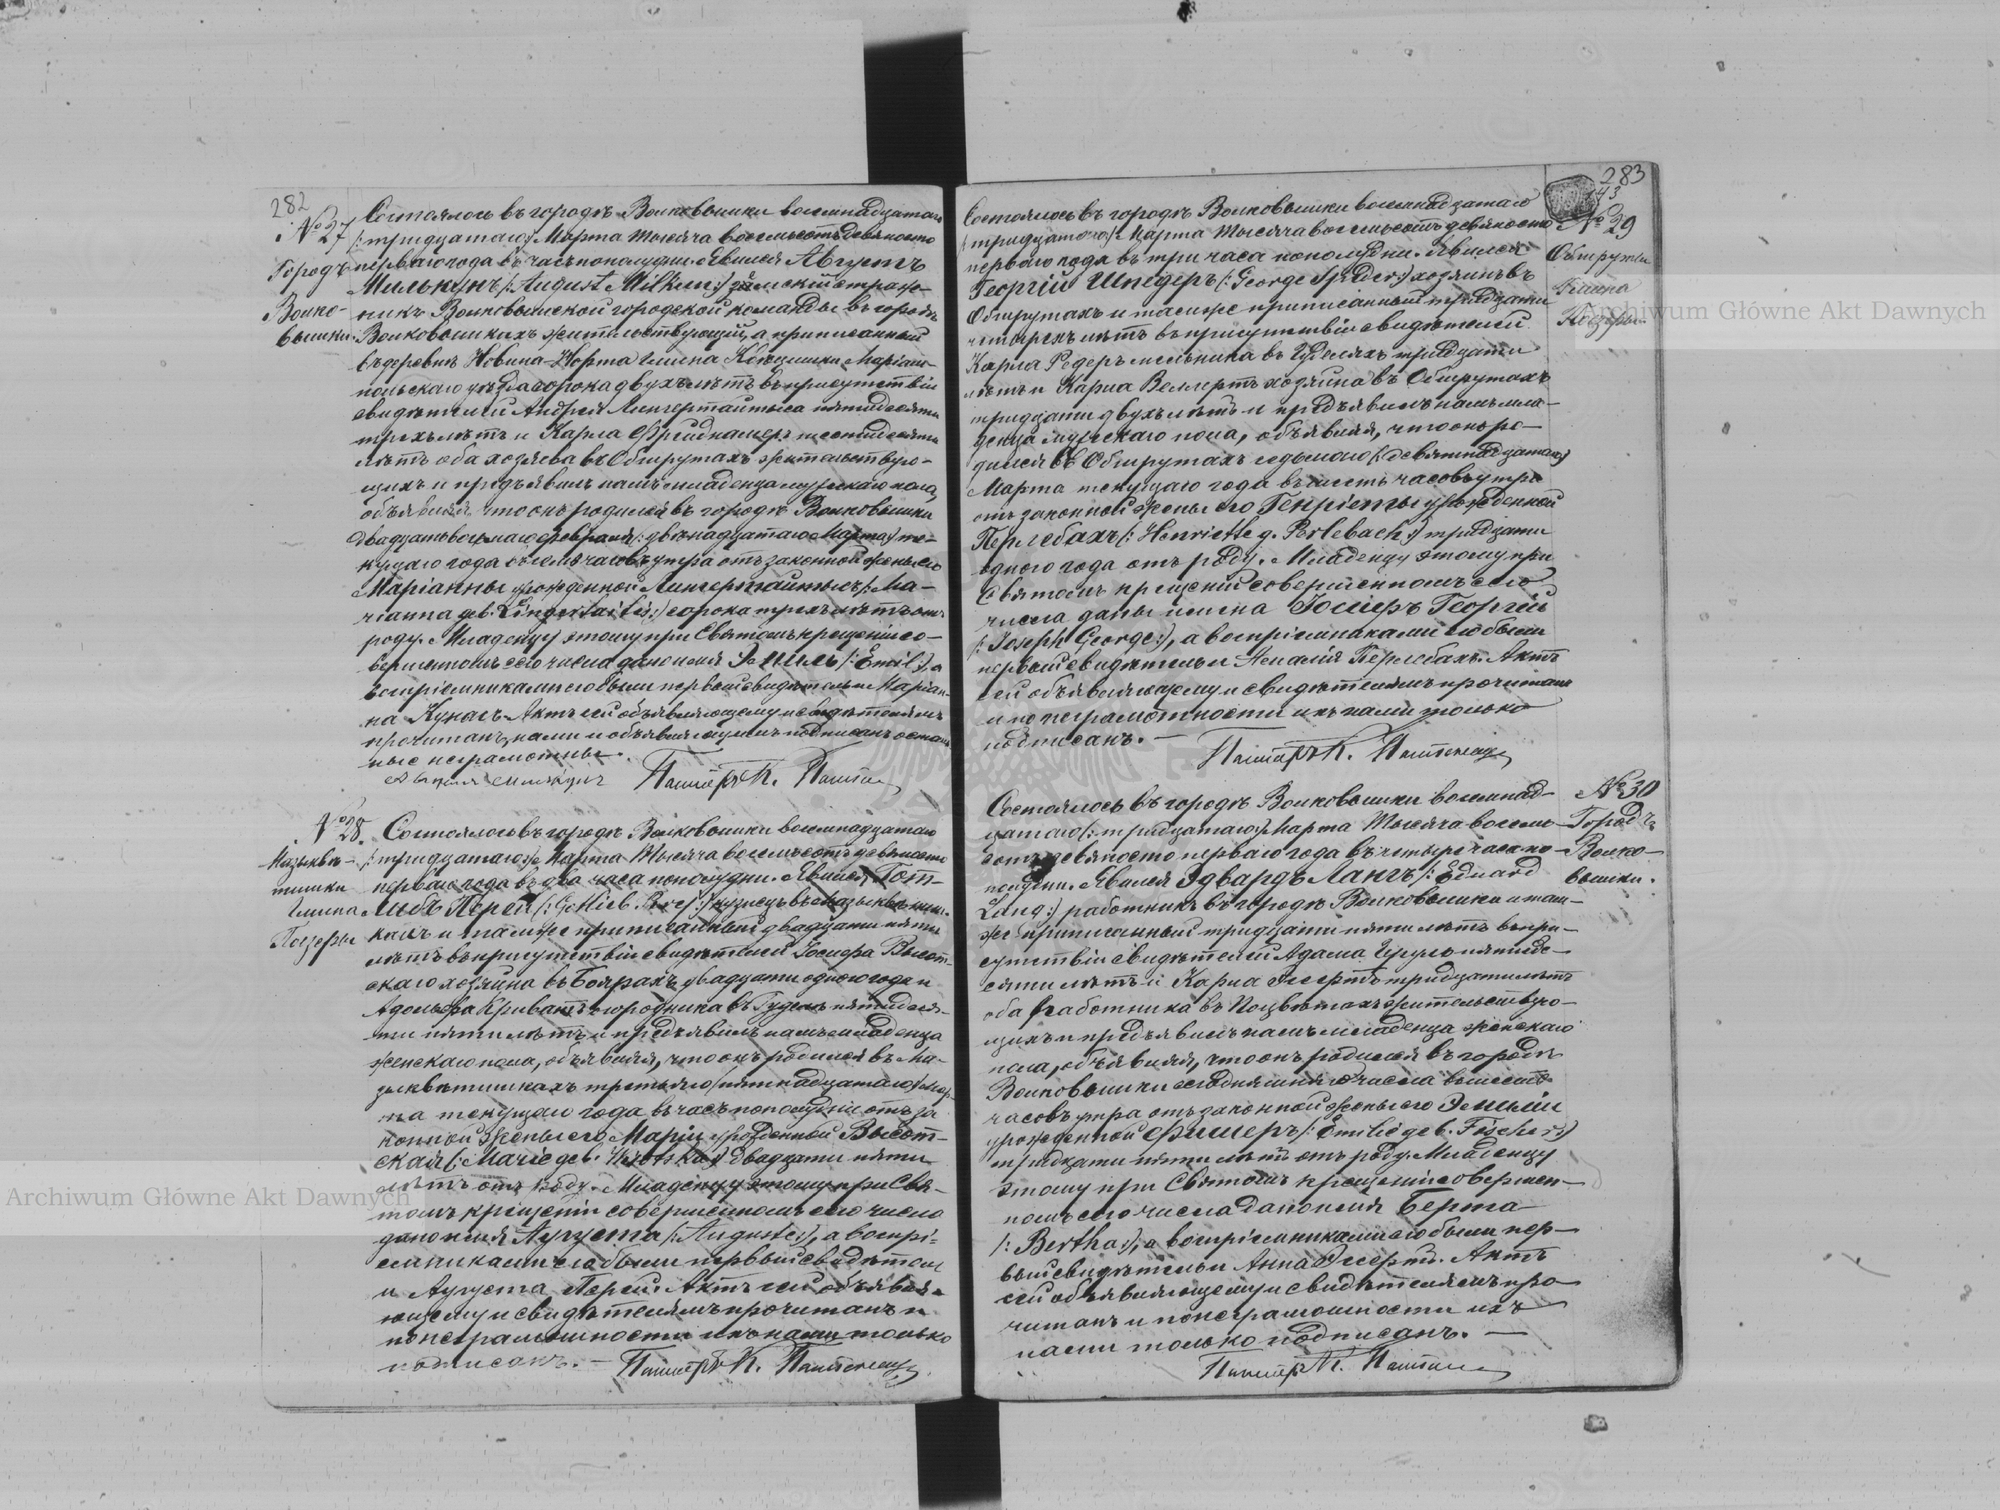 282
№ 27
Городъ
Волко-
вышки
Состоялось въ городѣ Волковышки восемнадцатаго
/:тридцатаго:/ Марта тысяча восемьсотъ девяносто
перваго года въ часъ пополудни. Явился Августъ
Милькунъ /:August Milkun:/ земскій страж-
никъ Волковышской городской команды въ городѣ
Волковышкахъ жительствующій, а приписанный
къ деревнѣ Новина-Норта гмина Маріам-
польскаго уѣзда сорока двухъ лѣтъ въ присутствіи
свидѣтелей Андрея Лингертайтыса пятидесяти
трехъ лѣтъ и Карла шестидесяти
лѣтъ оба хозяева въ Обшрутахъ жительствую-
щихъ и предъявилъ намъ младенца мужскаго пола,
объявляя что онъ родился въ городѣ Волковышки
двадцать восьмаго февраля /:двѣнадцатаго Марта:/ те-
кущаго года въ семь часовъ утра отъ законной жены его
Маріанны урожденной Лингертайтысъ /:Ma-
rianna geb. Lingertaitis:/ сорока трехъ лѣтъ отъ
роду. Младенцу этому при Святомъ крещеніи со-
вершенномъ сего числа дано имя Эмиль /:Emil:/, а
воспріемниками его были первый свидѣтель и Маріан-
на Кукасъ. Актъ сей объявляющему и свидѣтелямъ
прочитанъ, нами и объявляющимъ подписанъ осталь-
ные неграмотны.
Пасторъ К.
№ 28.
Мазыквѣ-
тишки
Гмина
Поезеры
Состоялось въ городѣ Волковышки восемнадцатаго
/:тридцатаго:/ Марта тысяча восемьсотъ девяносто
перваго года въ два часа пополудни. Явился Гот-
либъ Перей кузнецъ въ Мазыквѣтиш-
кахъ и тамже приписанный двадцати пяти
лѣтъ въ присутствіи свидѣтелей Іосифа Высот-
скаго хозяина въ Боярахъ двадцати одного года и
Адольфа огородника въ пятидеся-
ти пяти лѣтъ и предъявилъ намъ младенца
женскаго пола, объявляя, что онъ родился въ Ма-
зыквѣтишкахъ третьяго /:пятнадцатаго:/ Мар-
та текущаго года въ часъ пополудни отъ за-
конной жены его Маріи урожденной Высот-
ской двадцати пяти
лѣтъ отъ роду. Младенцу этому при Свя-
томъ крещеніи совершенномъ сего числа
дано имя Аугуста /:Auguste:/, а воспрі-
емниками его были первый свидѣтель
и Аугуста Перей. Актъ сей объявля-
ющему и свидѣтелямъ прочитанъ и
по неграмотности ихъ нами только
подписанъ. —
Пасторъ К.
283
43
№ 29
Обшруты
Гмина
Поезеры
Состоялось въ городѣ Волковышки восемнадцатаго
/:тридцатаго:/ Марта тысяча восемьсотъ девяносто
перваго года въ три часа пополудни. Явился
Георгій Шпедеръ хозяинъ въ
Обшрутахъ и тамже приписанный тридцати
четырехъ лѣтъ въ присутствіи свидѣтелей
Карла Редеръ мельника въ тридцати
лѣтъ и Карла Веллертъ хозяина въ Обшрутахъ
тридцати двухъ лѣтъ и предъявилъ намъ мла-
денца мужскаго пола, объявляя, что онъ ро-
дился въ Обшрутахъ седьмаго /:девятнадцатаго:/
Марта текущаго года въ шесть часовъ утра
отъ законной жены его Генріетты урожденной
Перлебахъ /:Henriette g. Perlebach:/ тридцати
одного года отъ роду. Младенцу этому при
Святомъ крещеніи совершенномъ сего
числа даны имена Іосифъ Георгій
/:Joseph George:/, а воспріемниками его были
первый свидѣтель и Перлебахъ. Актъ
сей объявляющему и свидѣтелямъ прочитанъ
и по неграмотности ихъ нами только
подписанъ. —
Пасторъ К.
№ 30
Городъ
Волко-
вышки.
Состоялось въ городѣ Волковышки восемнад-
цатаго /:тридцатаго:/ Марта тысяча восемь-
сотъ девяносто перваго года въ четыре часа по-
полудни. Явился Эдвардъ Лангъ /:Eduard
Lang:/ работникъ въ городѣ Волковышки и там-
же приписанный тридцати пяти лѣтъ въ при-
сутствіи свидѣтелей Адама пятиде-
сяти лѣтъ и Карла тридцати лѣтъ
оба работника въ жительствую-
щихъ и предъявилъ намъ младенца женскаго
пола, объявляя, что онъ родился въ городѣ
Волковышки сегодняшняго числа въ шесть
часовъ утра отъ законной жены его Эмиліи
урожденной Фишеръ /:Emilie geb. Fischer:/
тридцати пяти лѣтъ отъ роду. Младенцу
этому при Святомъ крещеніи совершен-
номъ сего числа дано имя Берта
/:Bertha:/, а воспріемниками его были пер-
вый свидѣтель и Анна. Актъ
сей объявляющему и свидѣтелямъ про-
читанъ и по неграмотности ихъ
нами только подписанъ. —
Пасторъ К.
Archiwum Główne Akt Dawnych
Archiwum Główne Akt Dawnych